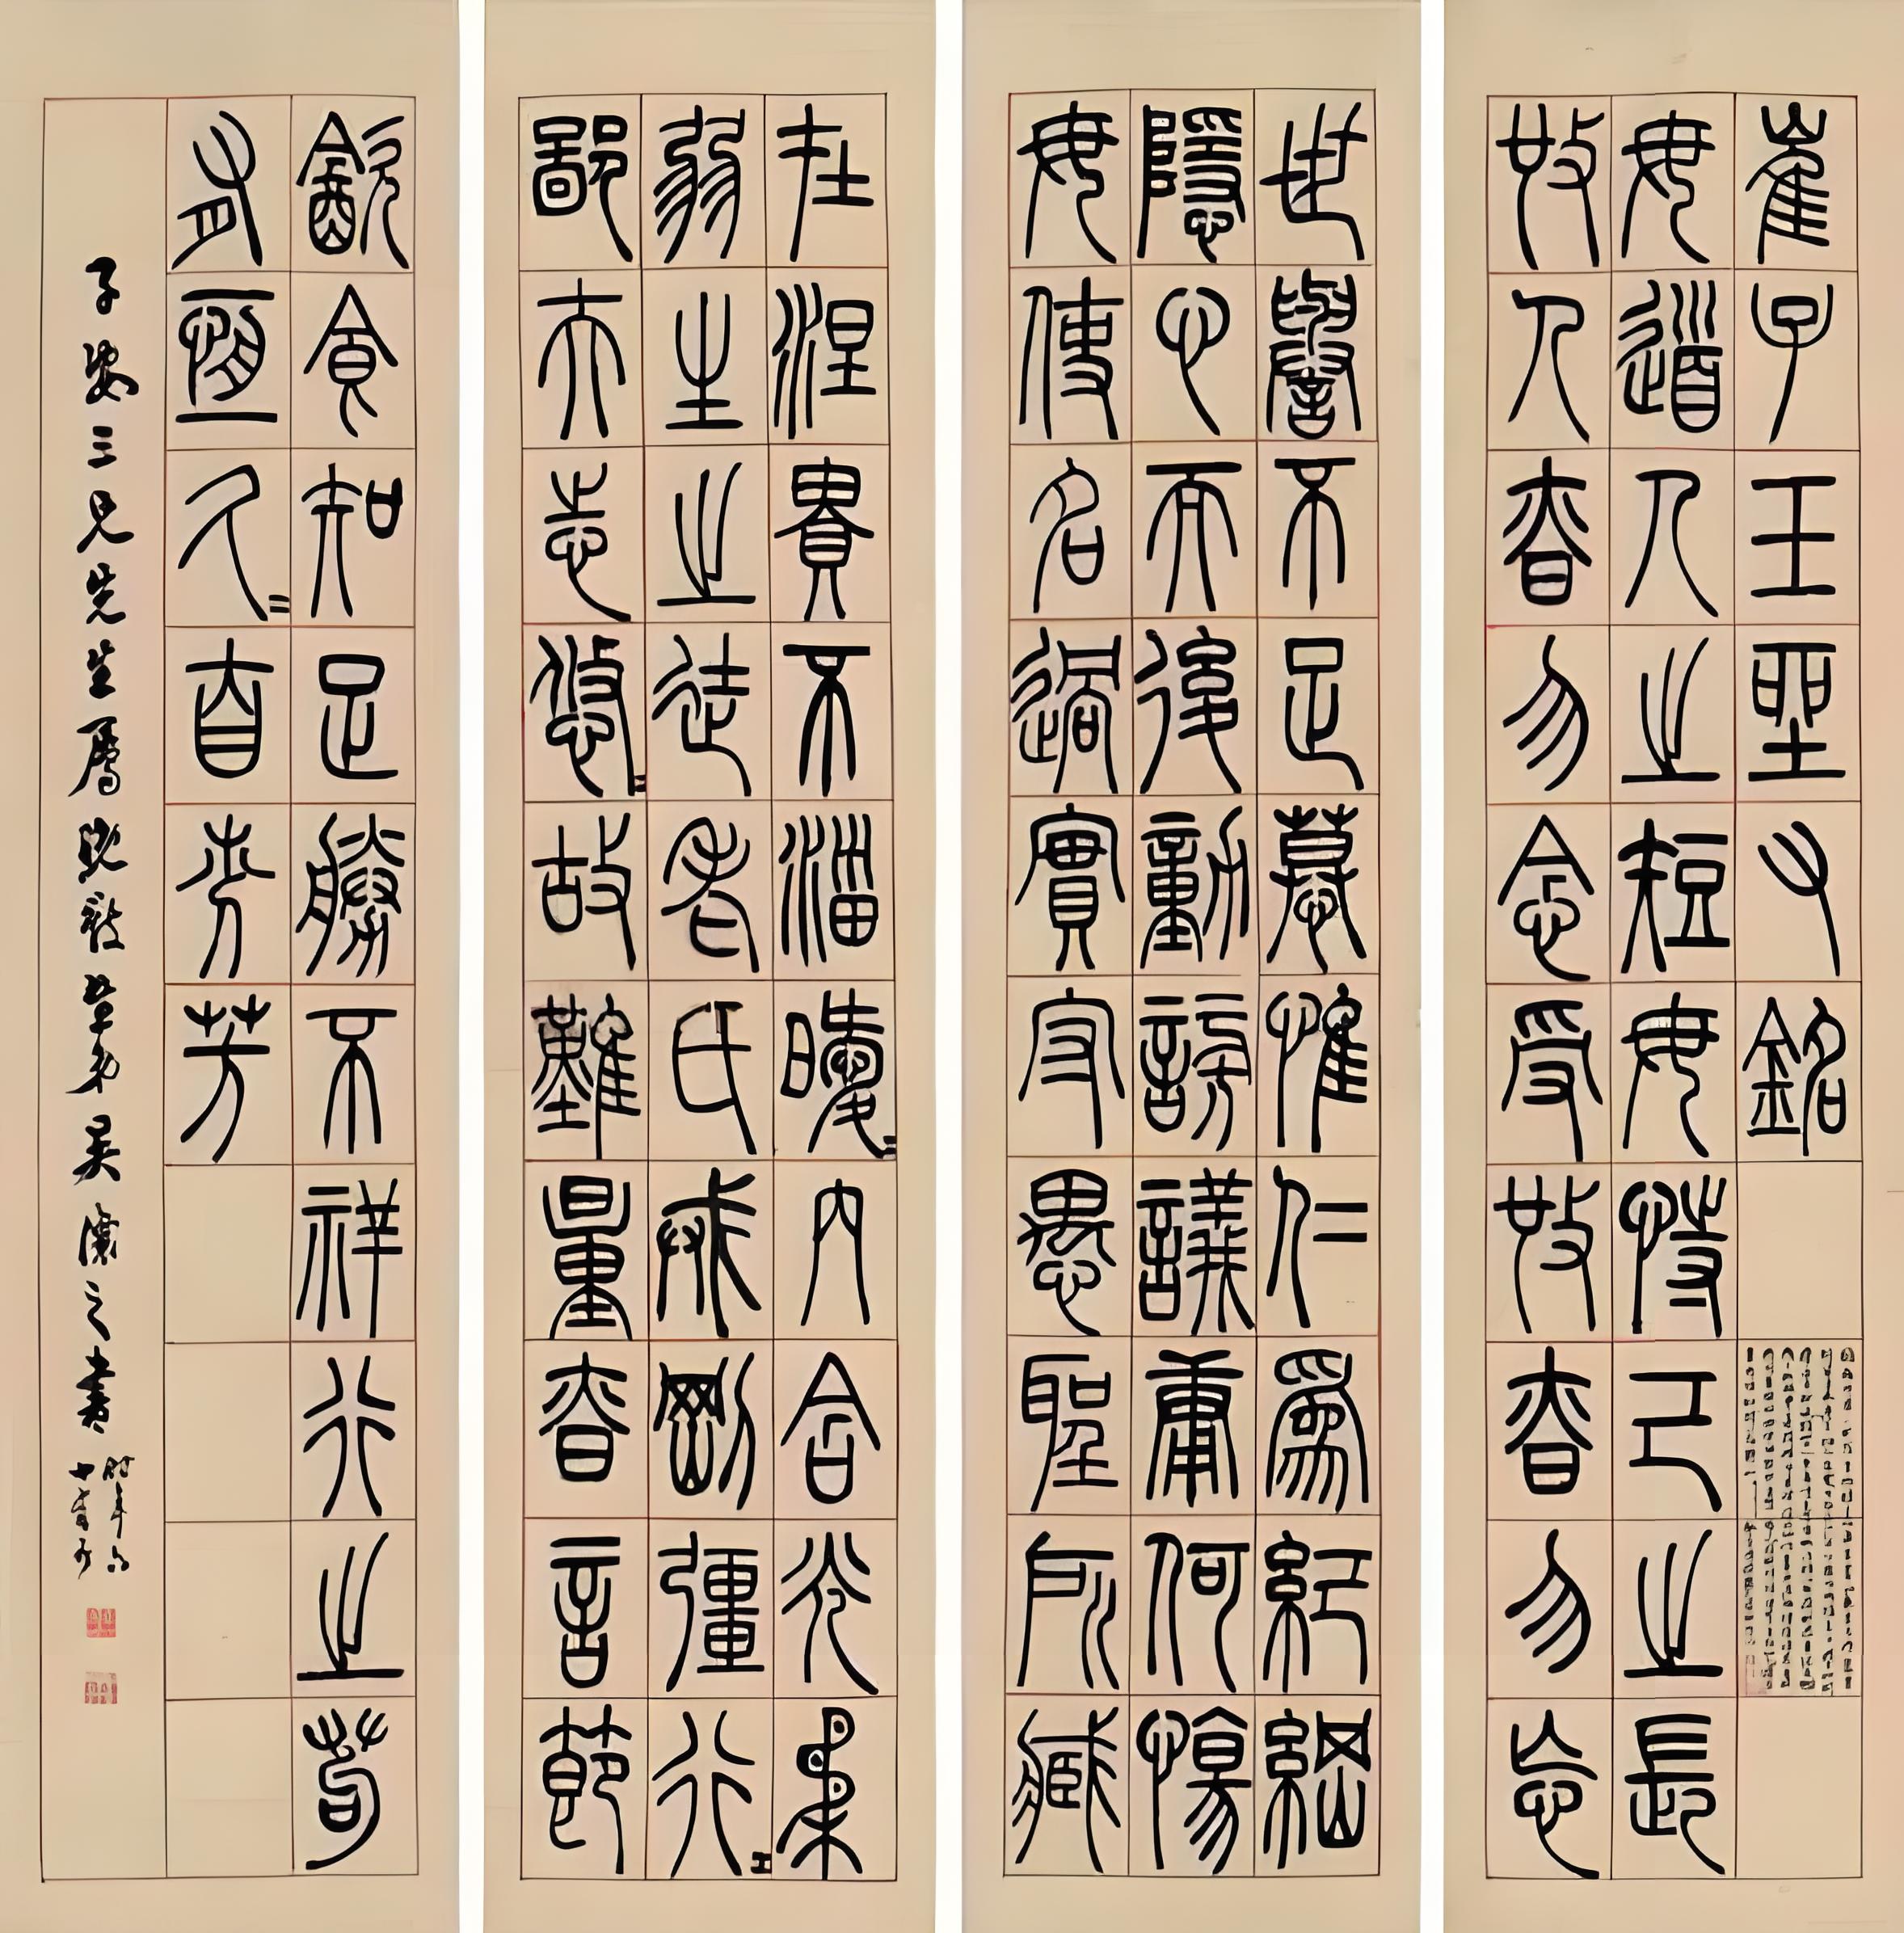 崔子玉坐右銘
毋道人之短毋恃己之長
施人昚勿念受施昚勿忘
世譽不足慕惟仁為紀綱
隱心而後動謗議庸何傷
毋使名過實守愚聖所臧
在涅貴不淄曖=內含光柔
弱生之徒老氏戒剛彊行=
鄙夫志悠=故難量昚言節
飲食知足勝不祥行之苟
有恆久=自芬芳
子三兄先生屬熙載弟吳讓之書
時年六
十有